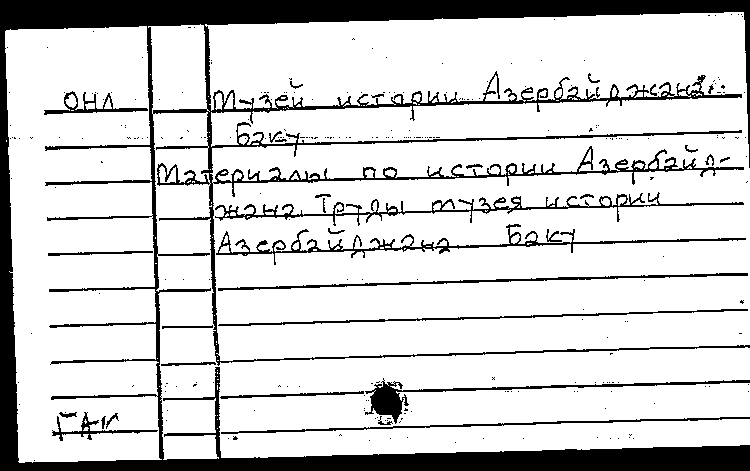 ОНЛ Музей истории Азербайджана.
Баку
Материалы по истории Азербайд-
жана. Труды музея истории
Азербайджана. Баку
ГАК